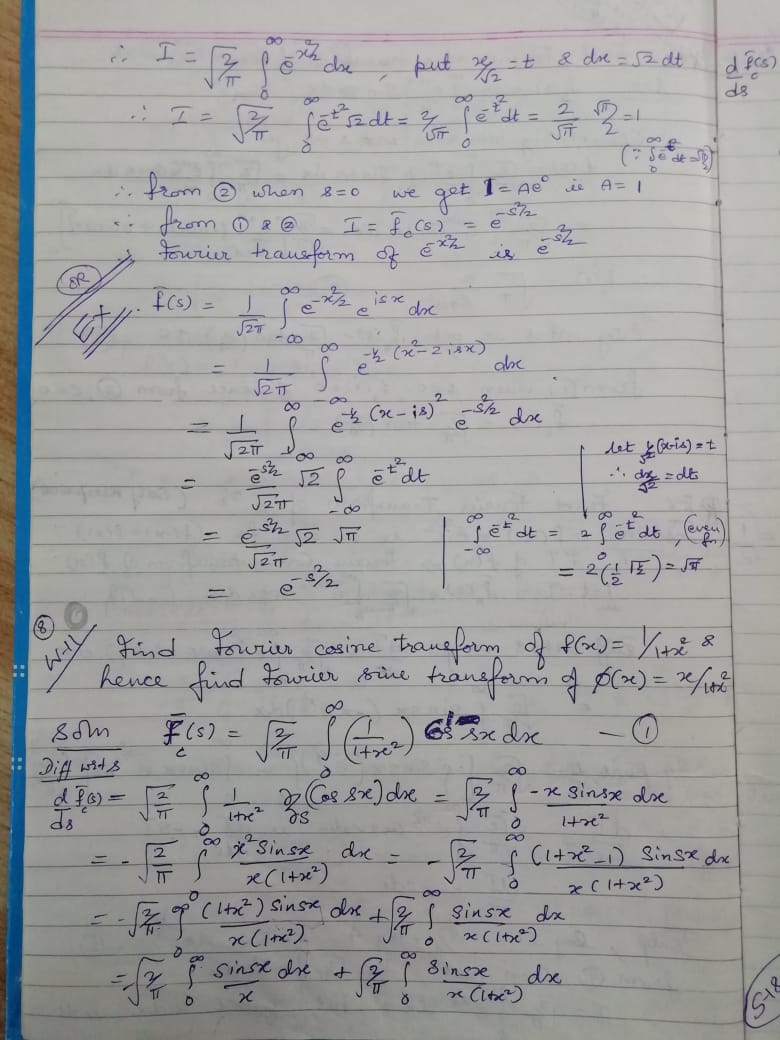 ∴ I = √(2/π) ∫₀^∞ e^(-x²/2) dx , put x/√2 = t & dx = √2 dt
d f̄c(s)/ds
∴ I = √(2/π) ∫₀^∞ e^(-t²) √2 dt = 2/√π ∫₀^∞ e^(-t²) dt = 2/√π √π/2 = 1
(∵ ∫₀^∞ e^(-t²) dt = √π/2)
∴ from ② when s=0 we get 1 = Ae⁰ ie A = 1
∴ from ① & ② I = f̄c(s) = e^(-s²/2)
Fourier transform of e^(-x²/2) is e^(-s²/2)
OR
Ex
f̄(s) = 1/√2π ∫_-∞^∞ e^(-x²/2) e^(isx) dx
= 1/√2π ∫_-∞^∞ e^(-½(x²-2isx)) dx
= 1/√2π ∫_-∞^∞ e^(-½(x-is)²) e^(-s²/2) dx
let 1/√2 (x-is) = t
∴ dx/√2 = dt
= e^(-s²/2)/√2π √2 ∫_-∞^∞ e^(-t²) dt
= e^(-s²/2)/√2π √2 √π
∫_-∞^∞ e^(-t²) dt = 2 ∫₀^∞ e^(-t²) dt, (even fn)
= 2(½ Γ½) = √π
= e^(-s²/2)
⑧ W-11 Find Fourier cosine transform of f(x) = 1/1+x² &
hence find Fourier sine transform of φ(x) = x/1+x²
Soln f̄c(s) = √(2/π) ∫₀^∞ (1/1+x²) Cos sx dx — ①
Diff w.r.t s
d/ds f̄c(s) = √(2/π) ∫₀^∞ 1/1+x² ∂/∂s (Cos sx) dx = √(2/π) ∫₀^∞ -x sinsx/1+x² dx
= -√(2/π) ∫₀^∞ x² Sinsx/x(1+x²) dx = -√(2/π) ∫₀^∞ (1+x²-1) Sinsx/x(1+x²) dx
= -√(2/π) ∫₀^∞ (1+x²) sinsx/x(1+x²) dx + √(2/π) ∫₀^∞ sinsx/x(1+x²) dx
= -√(2/π) ∫₀^∞ sinsx/x dx + √(2/π) ∫₀^∞ Sinsx/x(1+x²) dx
S-18